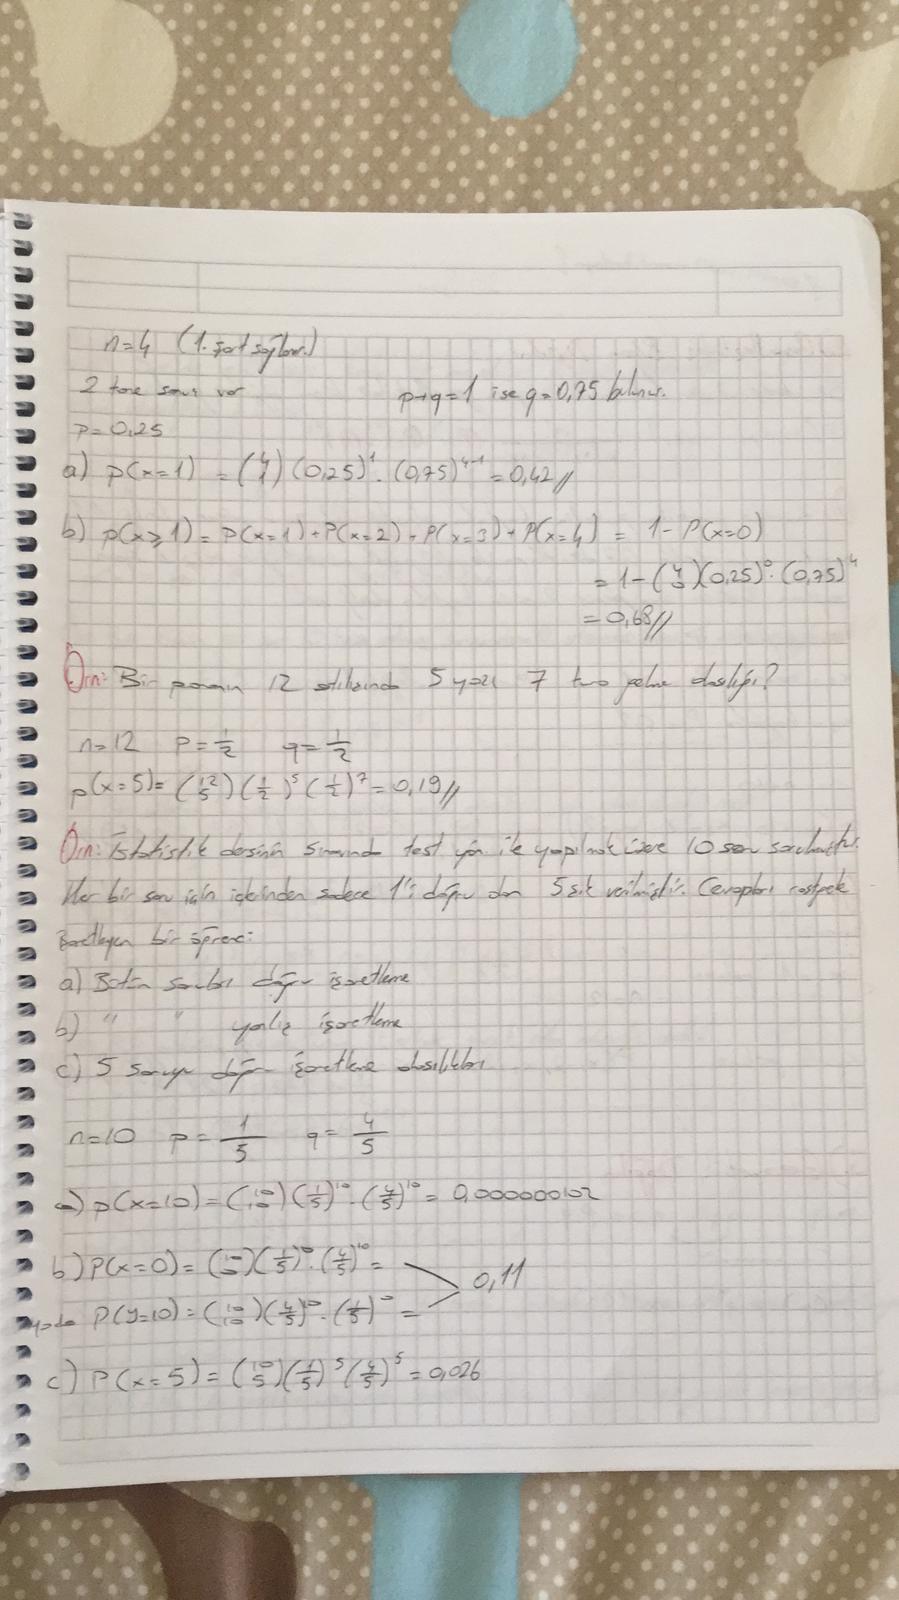 n=4 (1. şart sağlanır.)
2 tane sonuç var p+q=1 ise q=0,75 bulunur.
p=0,25
a) p(x=1) = (4 1) (0,25)^1 . (0,75)^4-1 = 0,42 //
b) p(x≥1) = p(x=1) + P(x=2) + P(x=3) + P(x=4) = 1 - P(x=0)
= 1 - (4 0) (0,25)^0 . (0,75)^4
= 0,68 //
Örn: Bir paranın 12 atılışında 5 yazı 7 tura gelme olasılığı?
n=12 p=1/2 q=1/2
p(x=5) = (12 5) (1/2)^5 (1/2)^7 = 0,19 //
Örn: İstatistik dersinin sınavında test yön. ile yapılmak üzere 10 soru sorulmuştur.
Her bir soru için içlerinden sadece 1'i doğru olan 5 şık verilmiştir. Cevapları rastgele
işaretleyen bir öğrenci:
a) Bütün soruları doğru işaretleme
b) " " yanlış işaretleme
c) 5 soruyu doğru işaretleme olasılıkları
n=10 p=1/5 q=4/5
a) p(x=10) = (10 10) (1/5)^10 . (4/5)^10 = 0,000000102
b) P(x=0) = (10 0) (1/5)^0 . (4/5)^10 = 0,11
ya da P(y=10) = (10 10) (4/5)^10 . (1/5)^0 =
c) P(x=5) = (10 5) (1/5)^5 (4/5)^5 = 0,026